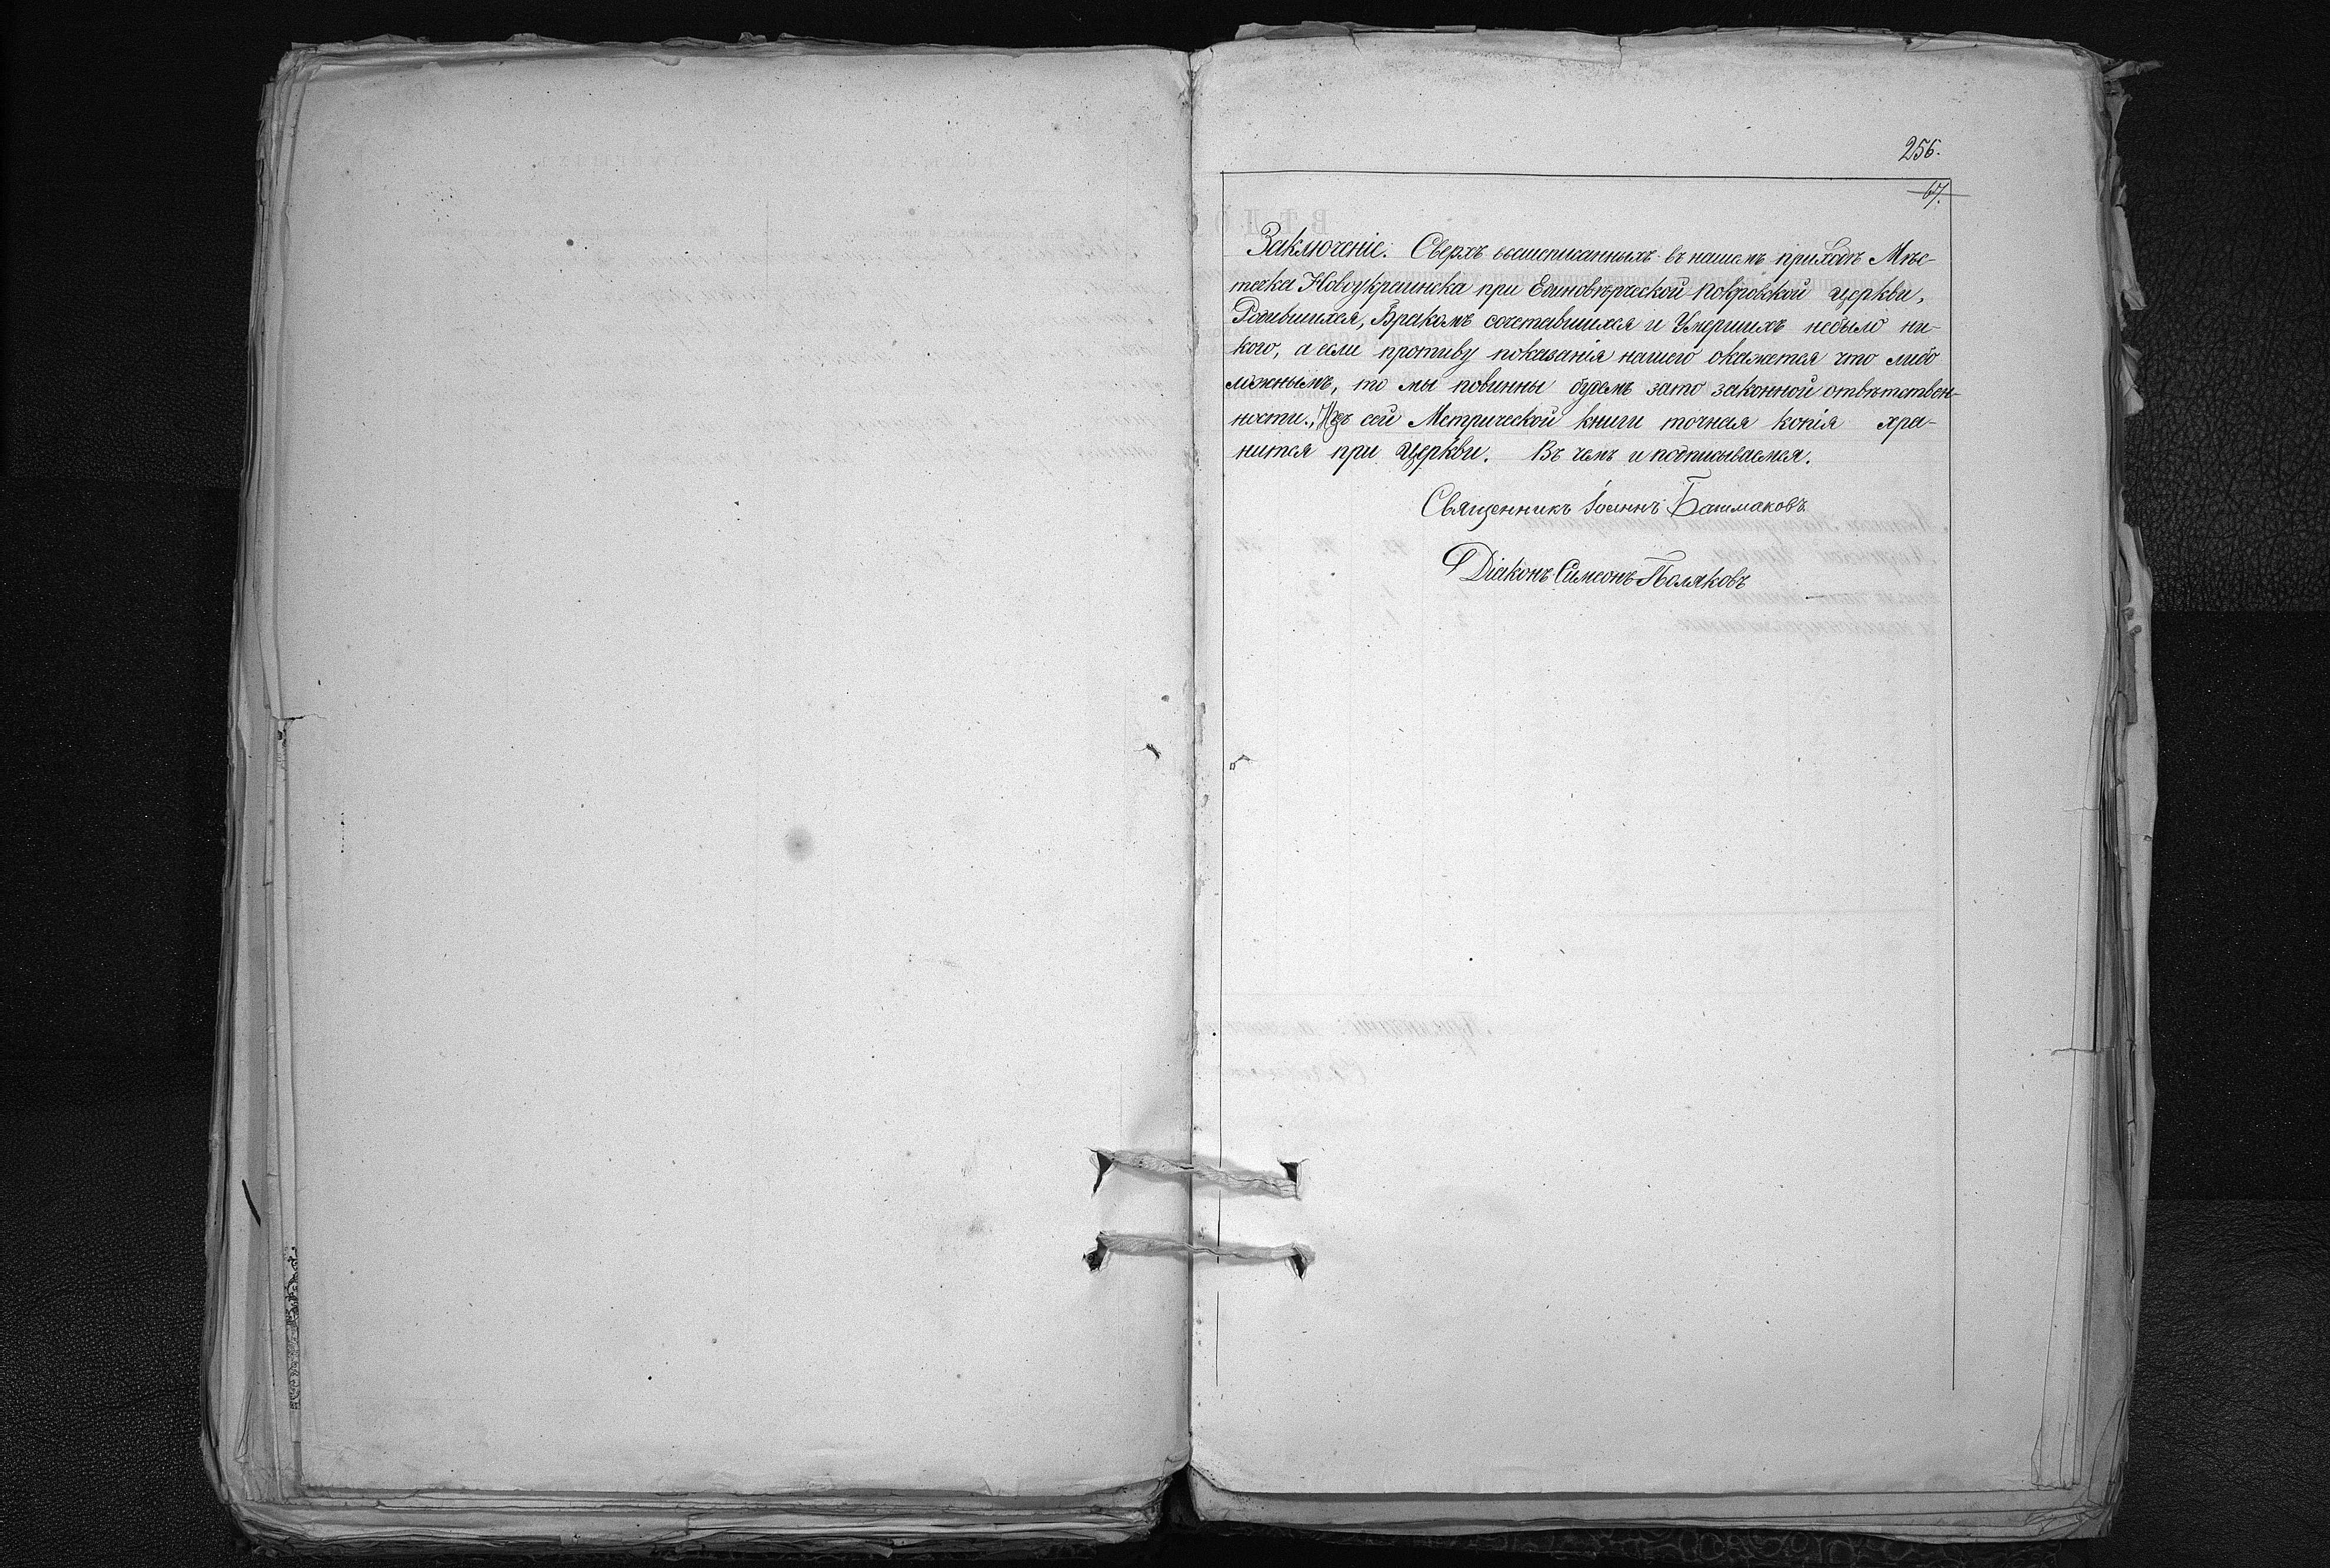 256.
67.
Заключеніе. Сверхъ вышеписанныхъ въ нашемъ приходѣ Мѣс-
течка Новоукраинска при Единовѣрческой Покровской церкви,
Родившихся, Бракомъ сочетавшихся и Умершихъ небыло ни-
кого, а если противу показанія нашего окажется что либо
ложнымъ, то мы повинны будемъ зато законной отвѣтствен-
ности. Изъ сей Метрической книги точная копія хра-
нится при Церкви. Въ чемъ и подписываемся.
Священникъ Іоаннъ Башмаковъ
Діаконъ Симеонъ Поляковъ